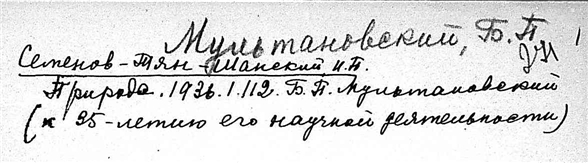 Мультановский, Б.П. 1
Семенов-Тян-Шанский, И.П.
Природа. 1936. 1. 112. Б.П. Мультановский
(к 35-летию его научной деятельности)